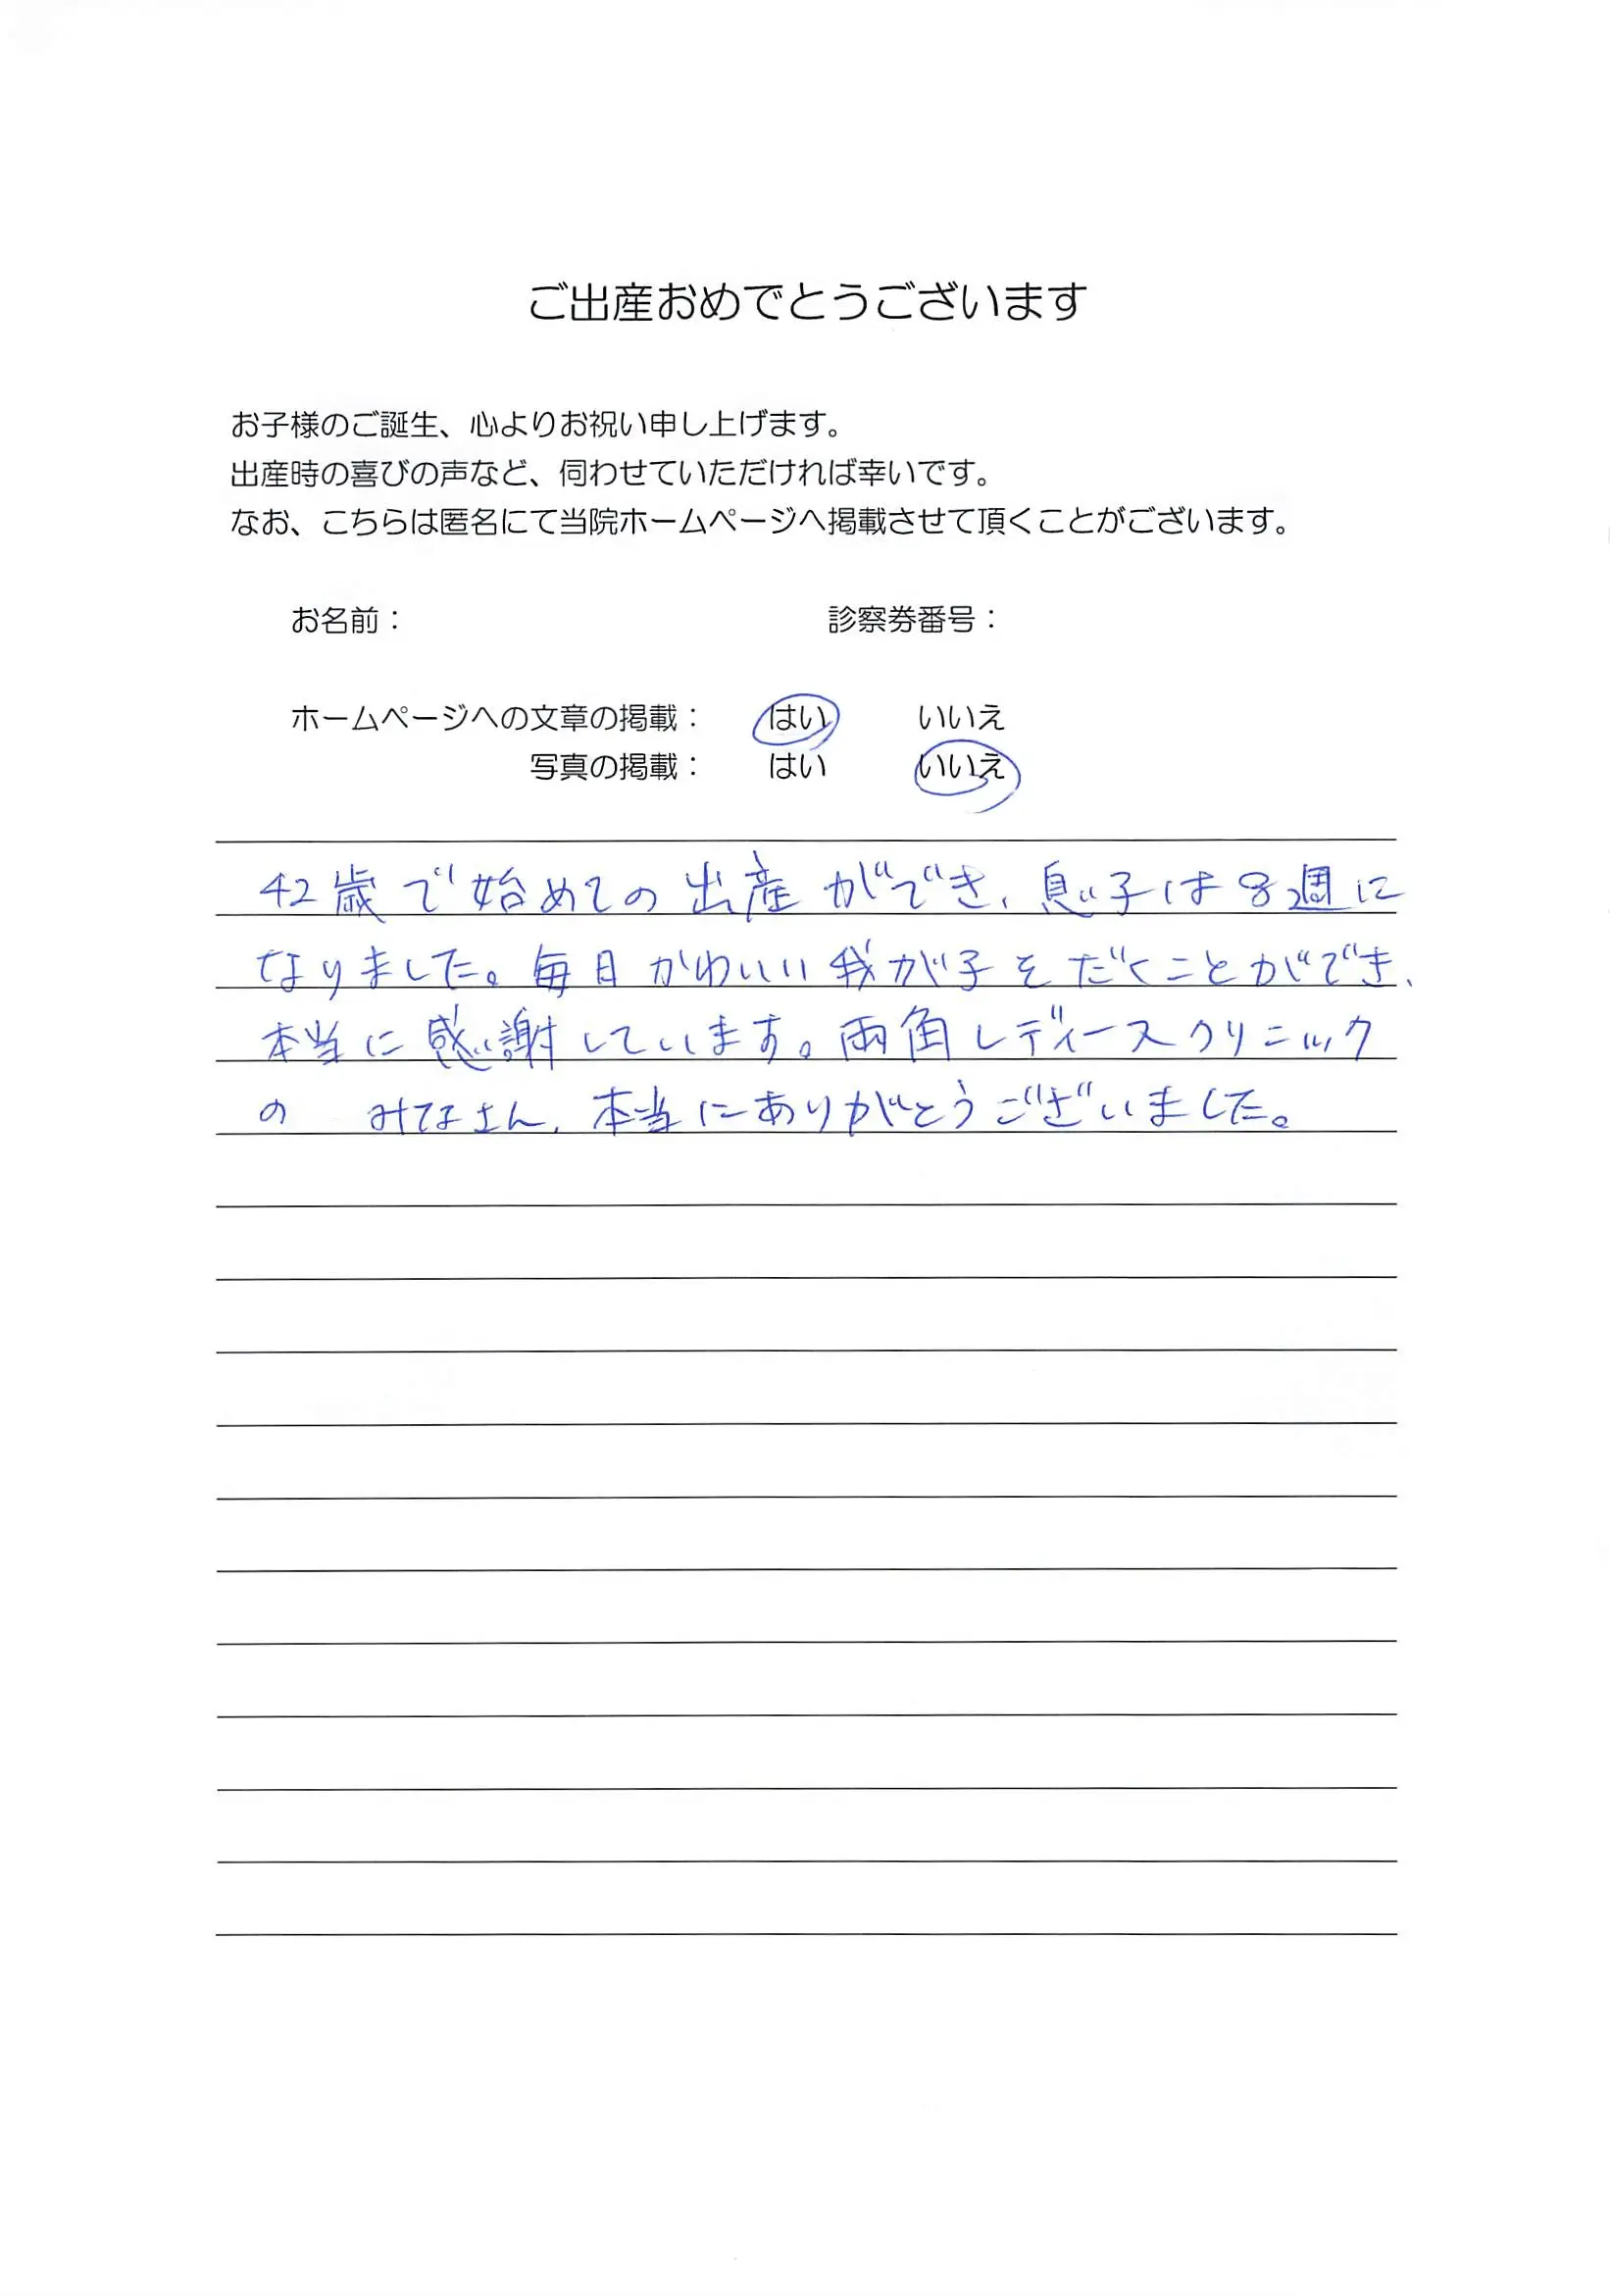 ご出産おめでとうございます
お子様のご誕生、心よりお祝い申し上げます。
出産時の喜びの声など、伺わせていただければ幸いです。
なお、こちらは匿名にて当院ホームページへ掲載させて頂くことがございます。
お名前： 診察券番号：
ホームページへの文章の掲載： はい いいえ
写真の掲載： はい いいえ
42歳で始めての出産ができ、息子は8週に
なりました。毎日かわいい我が子をだくことができ、
本当に感謝しています。両角レディースクリニック
の みなさん、本当にありがとうございました。